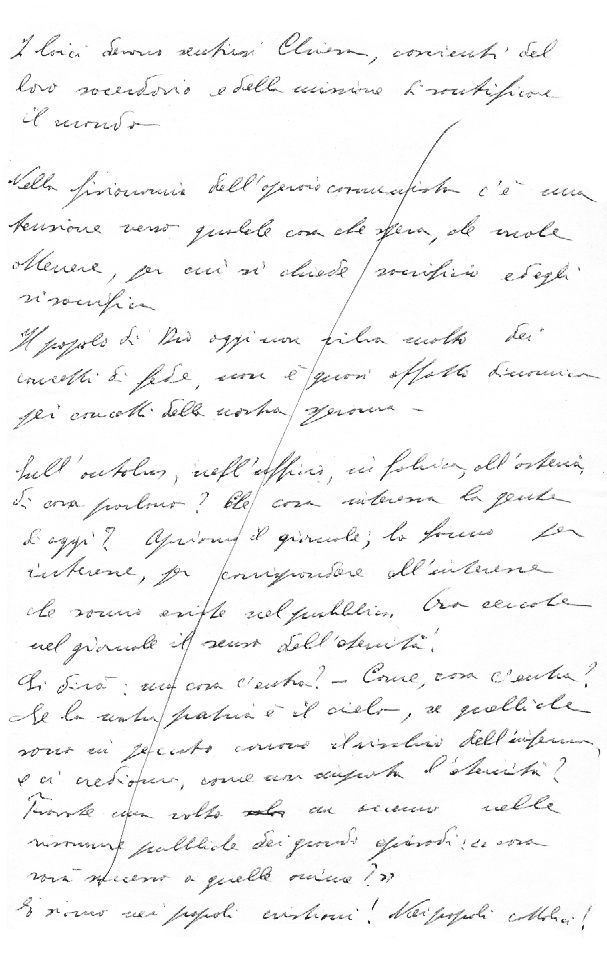 I laici devono sentirsi Chiesa, coscienti del
loro sacerdozio e della missione di santificare
il mondo
Nella fisionomia dell'operaio comunista c'è una
tensione verso qualche cosa che spera, che vuole
ottenere, per cui si chiede sacrificio ed egli
si sacrifica
Il popolo di Dio oggi non vibra molto dei
concetti di fede, non è quasi affatto dinamica
pei concetti della nostra speranza -
Sull'autobus, nell'ufficio, in fabbrica, all'osteria,
di cosa parlano? Che cosa interessa la gente
di oggi? Apriamo il giornale; lo fanno per
interesse, per corrispondere all'interesse
che sanno esiste nel pubblico. Ora cercate
nel giornale il senso dell'eternità!
Si dirà: ma cosa c'entra? - Come, cosa c'entra?
Se la nostra patria è il cielo, se quelli che
sono in peccato corrono il rischio dell'inferno,
e ci crediamo, come non importa l'eternità?
Trovate una volta un accenno nelle
risonanze pubbliche dei grandi episodi: "e cosa
sarà successo a quelle anime?"
E siamo nei popoli cristiani! Nei popoli cattolici!